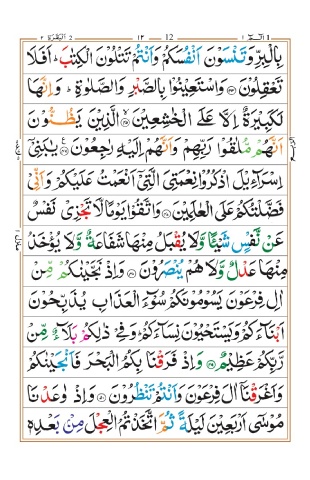 الٓمّٓ ١ 12 ١٢ البقرة 2 ٢
بِالۡبِرِّ وَتَنۡسَوۡنَ اَنۡفُسَكُمۡ وَاَنۡتُمۡ تَتۡلُوۡنَ الۡكِتٰبَ‌ؕ اَفَلَا
تَعۡقِلُوۡنَ ﴿۴۴﴾ وَاسۡتَعِيۡنُوۡا بِالصَّبۡرِ وَالصَّلٰوةِ ‌ؕ وَاِنَّهَا
لَكَبِيۡرَةٌ اِلَّا عَلَى الۡخٰشِعِيۡنَۙ‏ ﴿۴۵﴾ الَّذِيۡنَ يَظُنُّوۡنَ
اَنَّهُمۡ مُّلٰقُوۡا رَبِّهِمۡ وَاَنَّهُمۡ اِلَيۡهِ رٰجِعُوۡنَ ﴿۴۶﴾ يٰبَنِىۡٓ
اِسۡرَآءِيۡلَ اذۡكُرُوۡا نِعۡمَتِىَ الَّتِىۡٓ اَنۡعَمۡتُ عَلَيۡكُمۡ وَاَنِّىۡ
فَضَّلۡتُكُمۡ عَلَى الۡعٰلَمِيۡنَ ﴿۴۷﴾ وَاتَّقُوۡا يَوۡمًا لَّا تَجۡزِىۡ نَفۡسٌ
عَنۡ نَّفۡسٍ شَيۡـًٔـا وَّلَا يُقۡبَلُ مِنۡهَا شَفَاعَةٌ وَّلَا يُؤۡخَذُ
مِنۡهَا عَدۡلٌ وَّلَا هُمۡ يُنۡصَرُوۡنَ ﴿۴۸﴾ وَاِذۡ نَجَّيۡنٰکُمۡ مِّنۡ
اٰلِ فِرۡعَوۡنَ يَسُوۡمُوۡنَكُمۡ سُوۡٓءَ الۡعَذَابِ يُذَبِّحُوۡنَ
اَبۡنَآءَكُمۡ وَيَسۡتَحۡيُوۡنَ نِسَآءَكُمۡ‌ؕ وَفِىۡ ذٰلِكُمۡ بَلَآءٌ مِّنۡ
رَّبِّكُمۡ عَظِيۡمٌ ﴿۴۹﴾ وَاِذۡ فَرَقۡنَا بِكُمُ الۡبَحۡرَ فَاَنۡجَيۡنٰکُمۡ
وَاَغۡرَقۡنَآ اٰلَ فِرۡعَوۡنَ وَاَنۡتُمۡ تَنۡظُرُوۡنَ ﴿۵۰﴾ وَاِذۡ وٰعَدۡنَا
مُوۡسٰٓى اَرۡبَعِيۡنَ لَيۡلَةً ثُمَّ اتَّخَذۡتُمُ الۡعِجۡلَ مِنۡۢ بَعۡدِهٖ